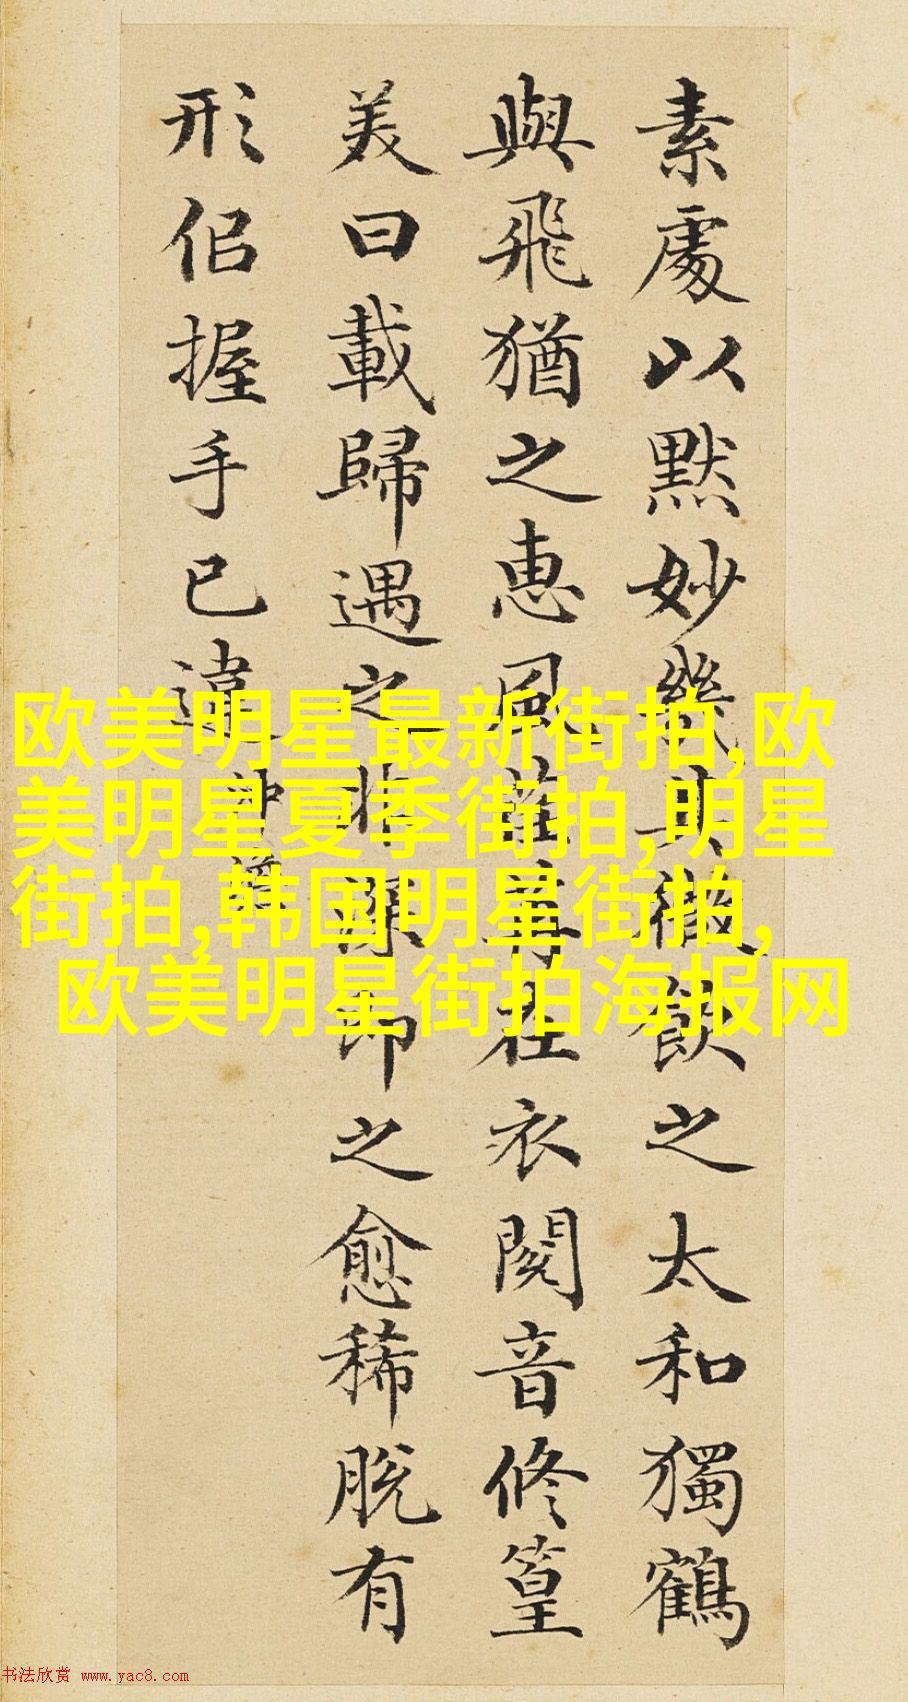 素處以默妙幾其微飲之太和獨鶴
與飛猶之惠風荏苒在衣閱音修篁
美曰載歸遇之非深即之愈稀脫有
形佀握手已違沖澹
欧美明星最新街拍,欧
美明星夏季街拍,明星
街拍,韩国明星街拍,
欧美明星街拍海报网
书法欣赏 www.yac8.com